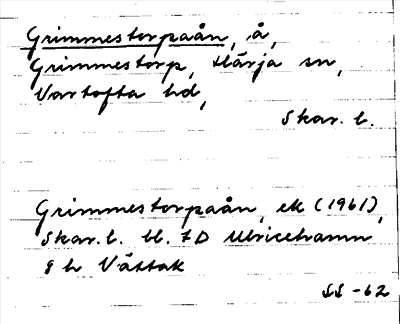 Grimmestorpaån, å,
Grimmestorp, Härja sn,
Vartofta hd,
Skar. l.
Grimmestorpaån, ek (1961),
Skar. l. bl. 7D Ulricehamn
9 h Vättak
SS -62